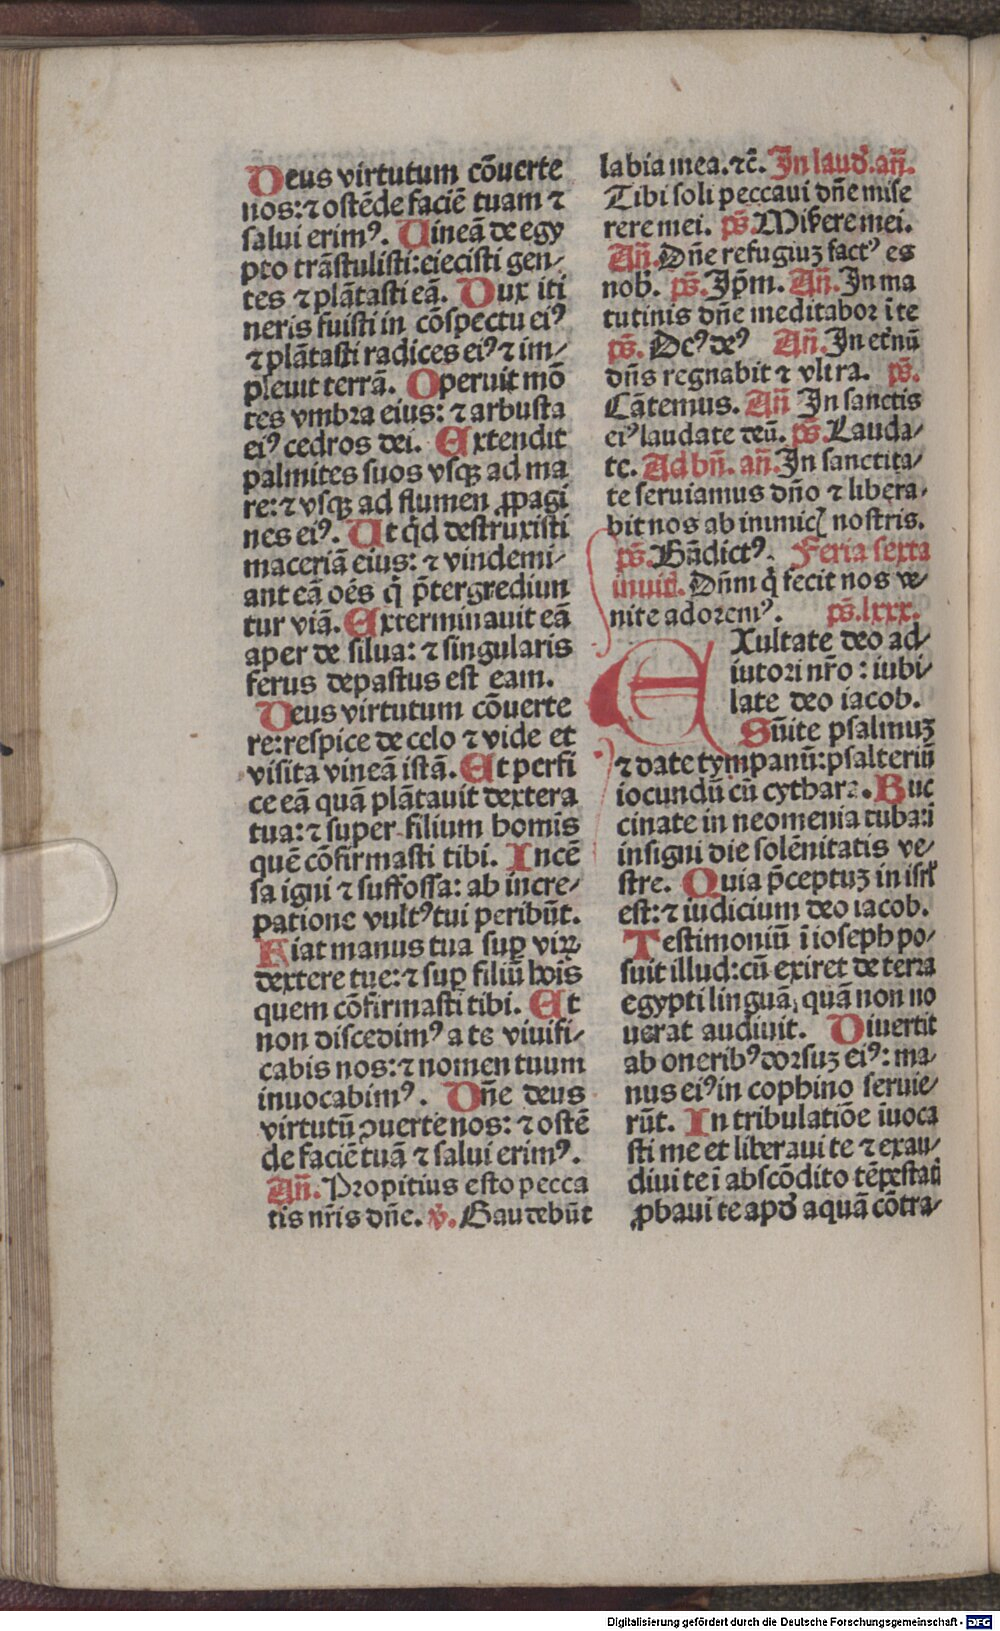 Deus virtutum cōuerte
nos: ⁊ ostēde faciē tuam ⁊
salui erimꝰ. Uineā de egy
pto trāstulisti: eiecisti gen⸗
tes ⁊ plātasti eā. Dux iti
neris fuisti in cōspectu eiꝰ
⁊ plātasti radices eiꝰ ⁊ im⸗
pleuit terrā. Operuit mō
tes vmbra eius: ⁊ arbusta
eiꝰ cedros dei. Extendit
palmites suos vsqꝫ ad ma
re: ⁊ vsqꝫ ad flumen ꝓpagi
nes eiꝰ. Ut qd̄ destruxisti
maceriā eius: ⁊ vindemi⸗
ant eā oēs q̄ p̄tergrediun
tur viā. Exterminauit eā
aper de silua: ⁊ singularis
ferus depastus est eam.
Deus virtutum cōuerte
re: respice de celo ⁊ vide et
visita vineā istā. Et perfi
ce eā quā plātauit dextera
tua: ⁊ super filium homis
quē cōfirmasti tibi. Incē
sa igni ⁊ suffossa: ab incre⸗
patione vultꝰ tui peribūt.
Fiat manus tua suꝑ viꝝ
dextere tue: ⁊ suꝑ filiū hoīs
quem cōfirmasti tibi. Et
non discedimꝰ a te viuifi⸗
cabis nos: ⁊ nomen tuum
inuocabimꝰ. Dn̄e deus
virtutū ꝯuerte nos: ⁊ ostē
de faciē tuā ⁊ salui erimꝰ.
An̄. Propitius esto pecca
tis nr̄is dn̄e. ꝟ. Gaudebūt
labia mea. ⁊c̄. In laud̄. an̄.
Tibi soli peccaui dn̄e mise
rere mei. ps̄. Mis̄ere mei.
An̄. Dn̄e refugiuꝫ factꝰ es
nob̄. ps̄. Ip̄m. An̄. In ma
tutinis dn̄e meditabor ī te
ps̄. Dcꝰ deꝰ An̄. In et̄nū
dn̄s regnabit ⁊ vltra. ps̄.
Cātemus. An̄ In sanctis
eiꝰ laudate deū. ps̄. Lauda⸗
te. Ad bn̄. an̄. In sanctita⸗
te seruiamus dn̄o ⁊ libera⸗
bit nos ab inimicꝭ nostris.
ps̄. Bn̄dictꝰ. Feria sexta
inuit̄. Dn̄m q̄ fecit nos ve⸗
nite adoremꝰ. ps̄. lxxx.
EXultate deo ad⸗
iutori nr̄o: iubi⸗
late deo iacob.
Sūite psalmuꝫ
⁊ date tympanū: psalteriū
iocundū cū cythara. Buc
cinate in neomenia tuba: ī
insigni die solēnitatis ve⸗
stre. Quia p̄ceptuꝫ in isrł
est: ⁊ iudicium deo iacob.
Testimoniū ī ioseph po⸗
suit illud: cū exiret de terra
egypti linguā, quā non no
uerat audiuit. Diuertit
ab oneribꝰ dorsuꝫ eiꝰ: ma⸗
nus eiꝰ in cophino seruie⸗
rūt. In tribulatiōe īuoca
sti me et liberaui te ⁊ exau⸗
diui te ī abscōdito tēpestatī
ꝓbaui te apd̄ aquā cōtra⸗
Digitalisierung gefördert durch die Deutsche Forschungsgemeinschaft - DFG